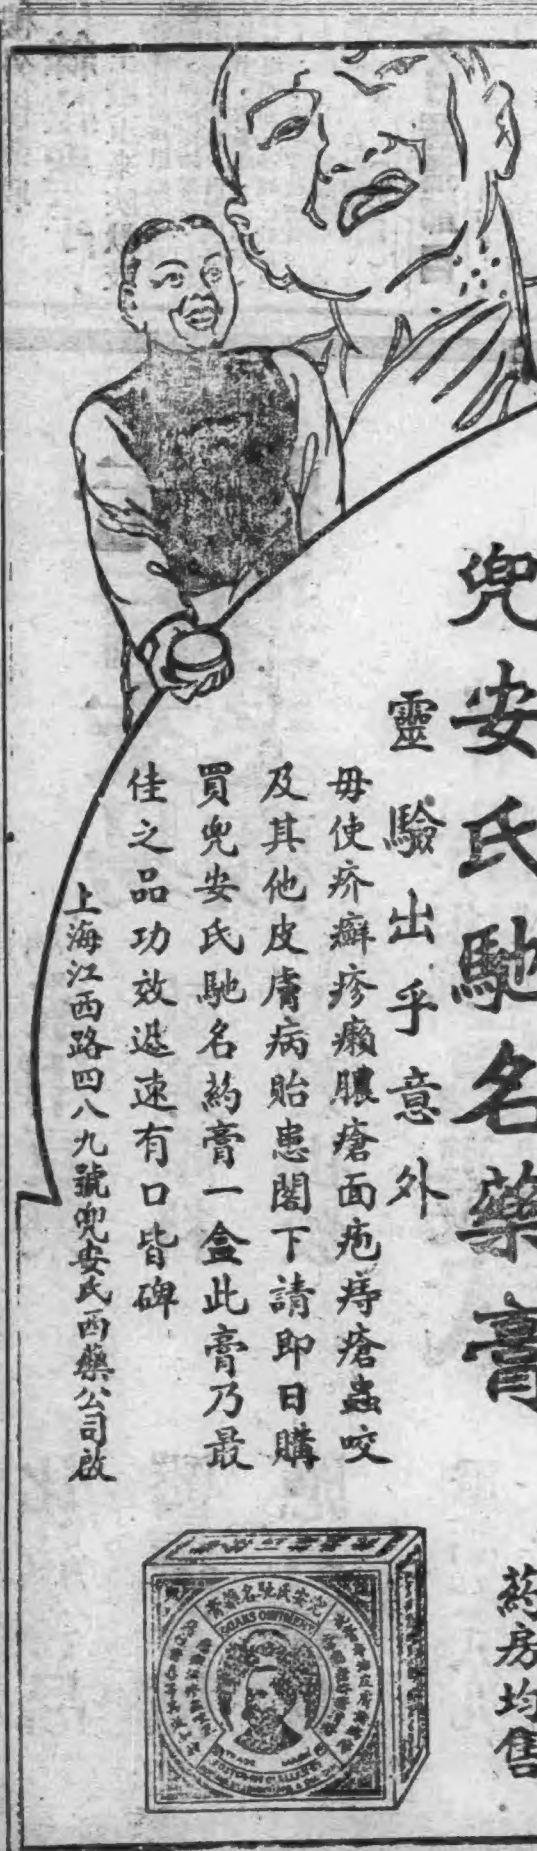 兜安氏馳名藥膏
靈驗出乎意外
毋使疥癬疹癩膿瘡面疱痔瘡蟲咬
及其他皮膚病貽患閣下請即日購
買兜安氏馳名葯膏一盒此膏乃最
佳之品功效迅速有口皆碑
上海江西路四八九號兜安氏西藥公司啟
葯房均售
兜安氏馳名藥膏
DOANS OINTMENT